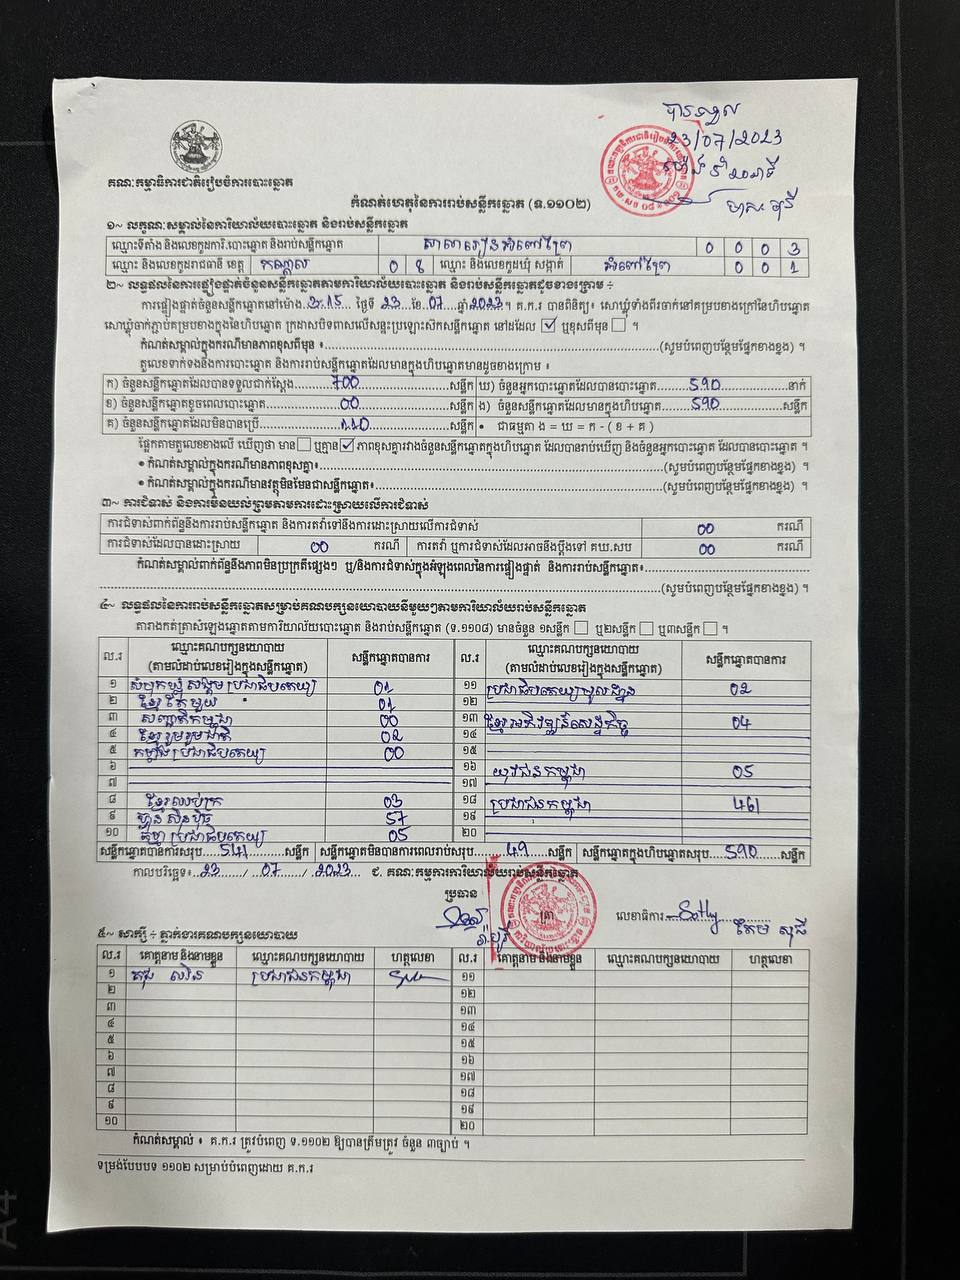 បានទទួល
23/07/2023
ម៉ោង
គណៈកម្មាធិការជាតិរៀបចំការបោះឆ្នោត
កំណត់ហេតុនៃការរាប់សន្លឹកឆ្នោត (ទ.១១០២)
១~ លក្ខណៈសម្គាល់នៃការិយាល័យបោះឆ្នោត និងរាប់សន្លឹកឆ្នោត
ឈ្មោះទីតាំង និងលេខកូដការិ.បោះឆ្នោត និងរាប់សន្លឹកឆ្នោត សាលារៀនអំពៅព្រៃ 0 0 0 3
ឈ្មោះ និងលេខកូដរាជធានី ខេត្ត កណ្តាល 0 8 ឈ្មោះ និងលេខកូដឃុំ សង្កាត់ អំពៅព្រៃ 0 0 1
២~ លទ្ធផលនៃការផ្ទៀងផ្ទាត់ចំនួនសន្លឹកឆ្នោតតាមការិយាល័យបោះឆ្នោត និងរាប់សន្លឹកឆ្នោតដូចខាងក្រោម ÷
ការផ្ទៀងផ្ទាត់ចំនួនសន្លឹកឆ្នោតនៅម៉ោង 3:15 ថ្ងៃទី 23 ខែ 07 ឆ្នាំ 2023។ គ.ក.រ បានពិនិត្យ៖ សោឃ្លុំទាំងពីរចាក់នៅគម្របខាងក្រៅនៃហិបឆ្នោត
សោឃ្លុំចាក់ភ្ជាប់គម្របខាងក្នុងនៃហិបឆ្នោត ក្រដាសបិទពាសលើសន្ទះប្រឡោះសិកសន្លឹកឆ្នោត នៅដដែល ☑ ឬខុសពីមុន ☐ ។
កំណត់សម្គាល់ក្នុងករណីមានភាពខុសពីមុន ៖ (សូមបំពេញបន្ថែមផ្នែកខាងខ្នង) ។
តួលេខទាក់ទងនឹងការបោះឆ្នោត និងការរាប់សន្លឹកឆ្នោតដែលមានក្នុងហិបឆ្នោតមានដូចខាងក្រោម ៖
ក) ចំនួនសន្លឹកឆ្នោតដែលបានទទួលជាក់ស្តែង 700 សន្លឹក ឃ) ចំនួនអ្នកបោះឆ្នោតដែលបានបោះឆ្នោត 590 នាក់
ខ) ចំនួនសន្លឹកឆ្នោតខូចពេលបោះឆ្នោត 00 សន្លឹក ង) ចំនួនសន្លឹកឆ្នោតដែលមានក្នុងហិបឆ្នោត 590 សន្លឹក
គ) ចំនួនសន្លឹកឆ្នោតដែលមិនបានប្រើ 110 សន្លឹក • ជាធម្មតា ង = ឃ = ក - ( ខ + គ )
ផ្អែកតាមតួលេខខាងលើ ឃើញថា មាន ☐ ឬគ្មាន ☑ ភាពខុសគ្នារវាងចំនួនសន្លឹកឆ្នោតក្នុងហិបឆ្នោត ដែលបានរាប់ឃើញ និងចំនួនអ្នកបោះឆ្នោត ដែលបានបោះឆ្នោត ។
• កំណត់សម្គាល់ក្នុងករណីមានភាពខុសគ្នា៖ (សូមបំពេញបន្ថែមផ្នែកខាងខ្នង) ។
• កំណត់សម្គាល់ក្នុងករណីមានវត្ថុមិនមែនជាសន្លឹកឆ្នោត៖ (សូមបំពេញបន្ថែមផ្នែកខាងខ្នង) ។
៣~ ការជំទាស់ និងការមិនយល់ព្រមតាមការដោះស្រាយលើការជំទាស់
ការជំទាស់ពាក់ព័ន្ធនឹងការរាប់សន្លឹកឆ្នោត និងការតវ៉ាទៅនឹងការដោះស្រាយលើការជំទាស់ 00 ករណី
ការជំទាស់ដែលបានដោះស្រាយ 00 ករណី ការតវ៉ា ឬការជំទាស់ដែលអាចនឹងប្តឹងទៅ គឃ.សប 00 ករណី
កំណត់សម្គាល់ពាក់ព័ន្ធនឹងភាពមិនប្រក្រតីផ្សេងៗ ឬ/និងការជំទាស់ក្នុងអំឡុងពេលនៃការផ្ទៀងផ្ទាត់ និងការរាប់សន្លឹកឆ្នោត៖
(សូមបំពេញបន្ថែមផ្នែកខាងខ្នង) ។
៤~ លទ្ធផលនៃការរាប់សន្លឹកឆ្នោតសម្រាប់គណបក្សនយោបាយនីមួយៗតាមការិយាល័យរាប់សន្លឹកឆ្នោត
តារាងកត់ត្រាសំឡេងឆ្នោតតាមការិយាល័យបោះឆ្នោត និងរាប់សន្លឹកឆ្នោត (ទ.១១០៨) មានចំនួន ១សន្លឹក ☐ ឬ២សន្លឹក ☐ ឬ៣សន្លឹក ☐ ។
ល.រ ឈ្មោះគណបក្សនយោបាយ (តាមលំដាប់លេខរៀងក្នុងសន្លឹកឆ្នោត) សន្លឹកឆ្នោតបានការ ល.រ ឈ្មោះគណបក្សនយោបាយ (តាមលំដាប់លេខរៀងក្នុងសន្លឹកឆ្នោត) សន្លឹកឆ្នោតបានការ
១ សំបុកឃ្មុំសង្គមប្រជាធិបតេយ្យ 01 ១១ ប្រជាធិបតេយ្យមូលដ្ឋាន 02
២ ខ្មែរតែមួយ 01 ១២
៣ សញ្ជាតិកម្ពុជា 00 ១៣ ខ្មែរអភិវឌ្ឍន៍សេដ្ឋកិច្ច 04
៤ ខ្មែររួបរួមជាតិ 02 ១៤
៥ កម្លាំងប្រជាធិបតេយ្យ 00 ១៥
៦ ១៦ យុវជនកម្ពុជា 05
៧ ១៧
៨ ខ្មែរឈប់ក្រ 03 ១៨ ប្រជាជនកម្ពុជា 461
៩ ហ្វ៊ុនស៊ិនប៉ិច 57 ១៩
១០ ធម្មាប្រជាធិបតេយ្យ 05 ២០
សន្លឹកឆ្នោតបានការសរុប 541 សន្លឹក សន្លឹកឆ្នោតមិនបានការពេលរាប់សរុប 49 សន្លឹក សន្លឹកឆ្នោតក្នុងហិបឆ្នោតសរុប 590 សន្លឹក
កាលបរិច្ឆេទ៖ 23 / 07 / 2023 ជ. គណៈកម្មការការិយាល័យរាប់សន្លឹកឆ្នោត
ប្រធាន
ត្រា លេខាធិការ
៥~ សាក្សី ÷ ភ្នាក់ងារគណបក្សនយោបាយ
ល.រ គោត្តនាម និងនាមខ្លួន ឈ្មោះគណបក្សនយោបាយ ហត្ថលេខា ល.រ គោត្តនាម និងនាមខ្លួន ឈ្មោះគណបក្សនយោបាយ ហត្ថលេខា
១ ប្រជាជនកម្ពុជា ១១
២ ១២
៣ ១៣
៤ ១៤
៥ ១៥
៦ ១៦
៧ ១៧
៨ ១៨
៩ ១៩
១០ ២០
កំណត់សម្គាល់ ៖ គ.ក.រ ត្រូវបំពេញ ទ.១១០២ ឱ្យបានត្រឹមត្រូវ ចំនួន ៣ច្បាប់ ។
ទម្រង់បែបបទ ១១០២ សម្រាប់បំពេញដោយ គ.ក.រ